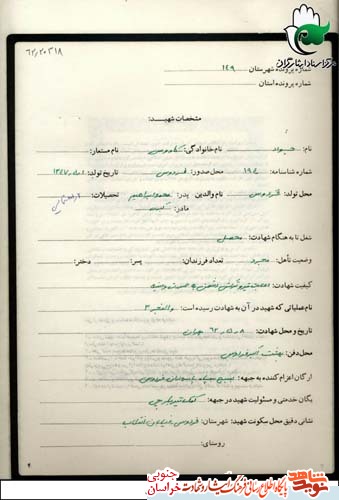 مرکز اسناد ایثارگران
۶۲/۲۰۳۱۸
شماره پرونده شهرستان ۱۴۹
شماره پرونده استان
مشخصات شهید:
نام: جواد نام خانوادگی: نام مستعار:
شماره شناسنامه: ۱۹۴ محل صدور: فردوس تاریخ تولد: ۱۳۴۷
محل تولد: فردوس نام والدین پدر: محمدابراهیم تحصیلات:
مادر:
شغل تا به هنگام شهادت: محصل
وضعیت تأهل: مجرد تعداد فرزندان: پسر: دختر:
کیفیت شهادت: اصابت تیر و ترکش دشمن به صورت و سینه
نام عملیاتی که شهید در آن به شهادت رسیده است: والفجر ۳
تاریخ و محل شهادت: ۶۲ مهران
محل دفن: بهشت اکبر فردوس
ارگان اعزام کننده به جبهه: بسیج سپاه پاسداران فردوس
یگان خدمتی و مسئولیت شهید در جبهه: کمک تیربارچی
نشانی دقیق محل سکونت شهید: شهرستان: فردوس خیابان انقلاب
روستای:
۴
نوید شاهد
پایگاه اطلاع رسانی فرهنگ ایثار و شهادت خراسان جنوبی